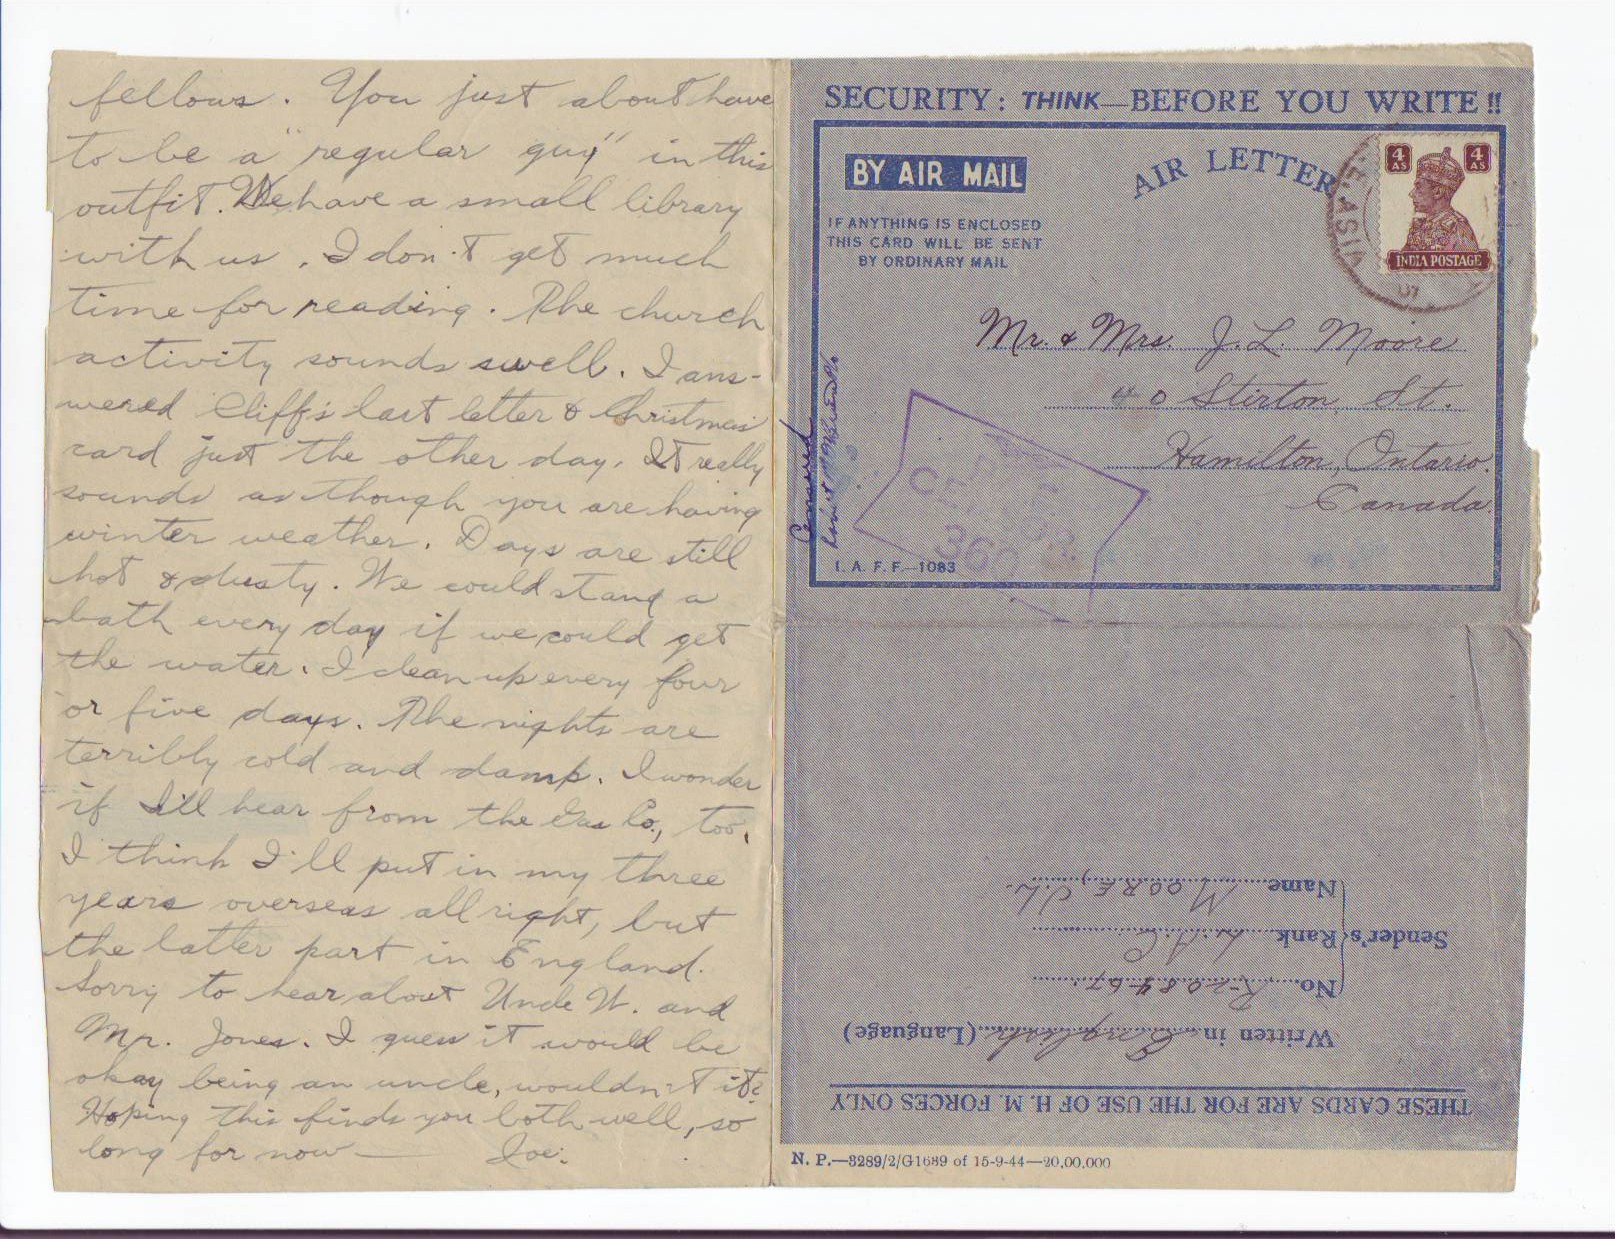 fellows. You just about have
to be a "regular guy" in this
outfit. We have a small library
with us. I don't get much
time for reading. The church
activity sounds swell. I ans-
wered Cliff's last letter & Christmas
card just the other day. It really
sounds as though you are having
winter weather. Days are still
hot & dusty. We could stand a
bath every day if we could get
the water. I clean up every four
or five days. The nights are
terribly cold and damp. I wonder
if I'll hear from the Gas Co., too.
I think I'll put in my three
years overseas all right, but
the latter part in England.
Sorry to hear about Uncle W. and
Mr. Jones. I guess it would be
okay being an uncle, wouldn't it?
Hoping this finds you both well, so
long for now — Joe.
SECURITY: THINK—BEFORE YOU WRITE!!
BY AIR MAIL
AIR LETTER
IF ANYTHING IS ENCLOSED
THIS CARD WILL BE SENT
BY ORDINARY MAIL
4 AS 4 AS
INDIA POSTAGE
ASIA
Mr. & Mrs. J. L. Moore
40 Stirton St.
Hamilton, Ontario.
Canada.
Censored
CENSOR
360
I. A. F. F.—1083
THESE CARDS ARE FOR THE USE OF H. M. FORCES ONLY
Written in English (Language)
Sender's
No. R-208467
Rank L.A.C.
Name MOORE, J.L.
N. P.—3289/2/G1689 of 15-9-44—20,00,000